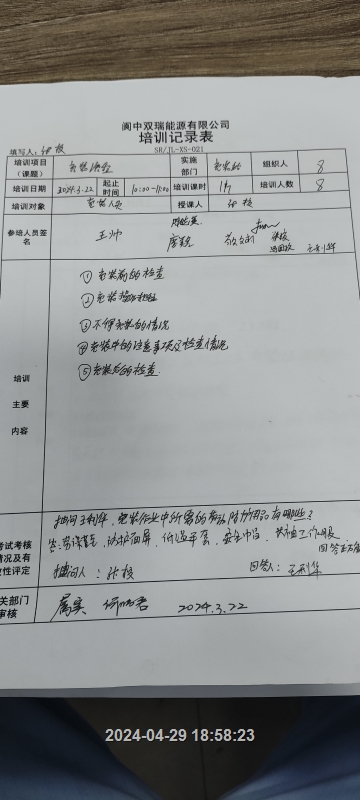 阆中双瑞能源有限公司
培训记录表
SR/JL-XS-021
填写人：张毅
培训项目（课题） 充装 实施部门 充装站 组织人
培训日期 2024.3.22 起止时间 10:00-11:00 培训课时 1h 培训人数 8
培训对象 充装人员 授课人 张毅
参培人员签名 王帅
培训主要内容
①充装前的检查
②充装
③不得充装的情况
④充装中的注意事项及检查情况
⑤充装后的检查
考试考核情况及有效性评定
提问王利华，充装作业中所需的劳动防护用品有哪些？
答：劳保鞋、防护面屏、低温手套、安全帽、工作服。
回答正确
提问人：张毅 回答人：王利华
关部门审核 属实 2024.3.22
2024-04-29 18:58:23